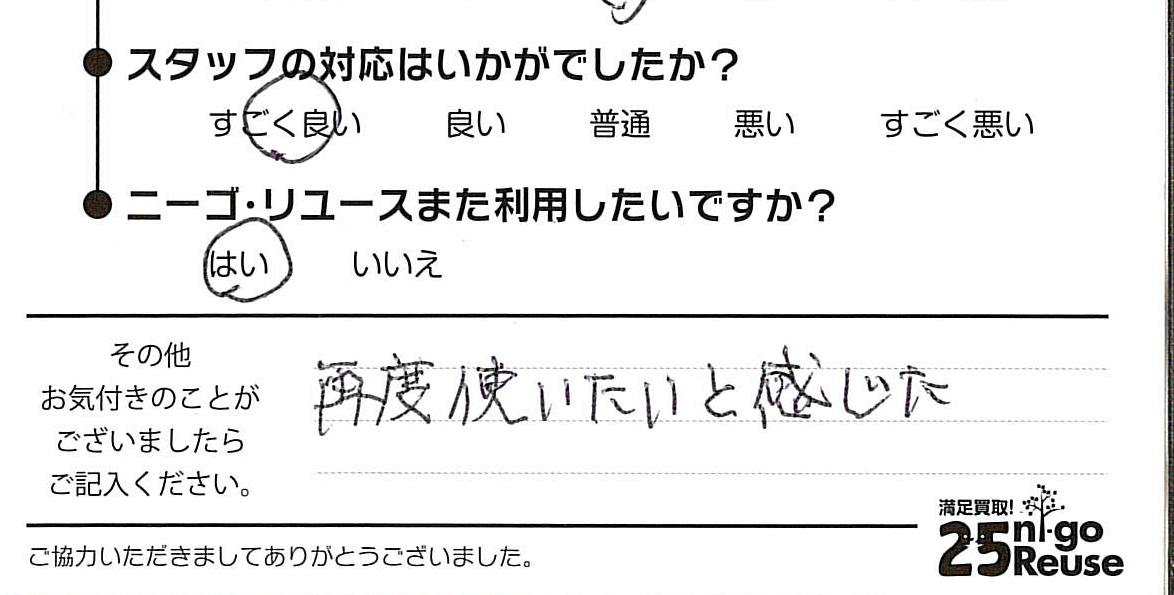 スタッフの対応はいかがでしたか？
すごく良い 良い 普通 悪い すごく悪い
ニーゴ・リユースまた利用したいですか？
はい いいえ
その他
お気付きのことが
ございましたら
ご記入ください。
再度使いたいと感じた
ご協力いただきましてありがとうございました。
満足買取！
25 ni-go
Reuse